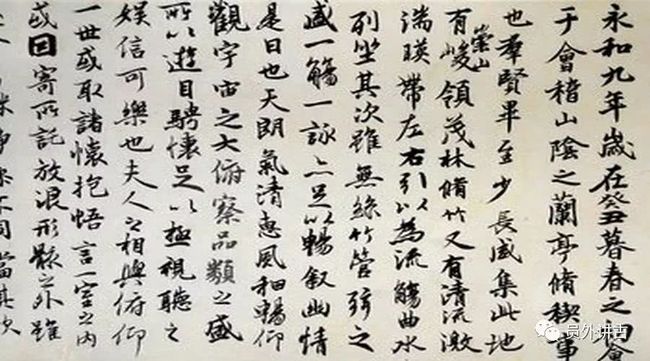 永和九年歲在癸丑暮春之初會
于會稽山陰之蘭亭脩稧事
也羣賢畢至少長咸集此地
有崇山峻領茂林脩竹又有清流激
湍暎帶左右引以為流觴曲水
列坐其次雖無絲竹管弦之
盛一觴一詠亦足以暢叙幽情
是日也天朗氣清惠風和暢仰
觀宇宙之大俯察品類之盛
所以遊目騁懷足以極視聽之
娛信可樂也夫人之相與俯仰
一世或取諸懷抱悟言一室之內
或因寄所託放浪形骸之外雖
不同當其
员外